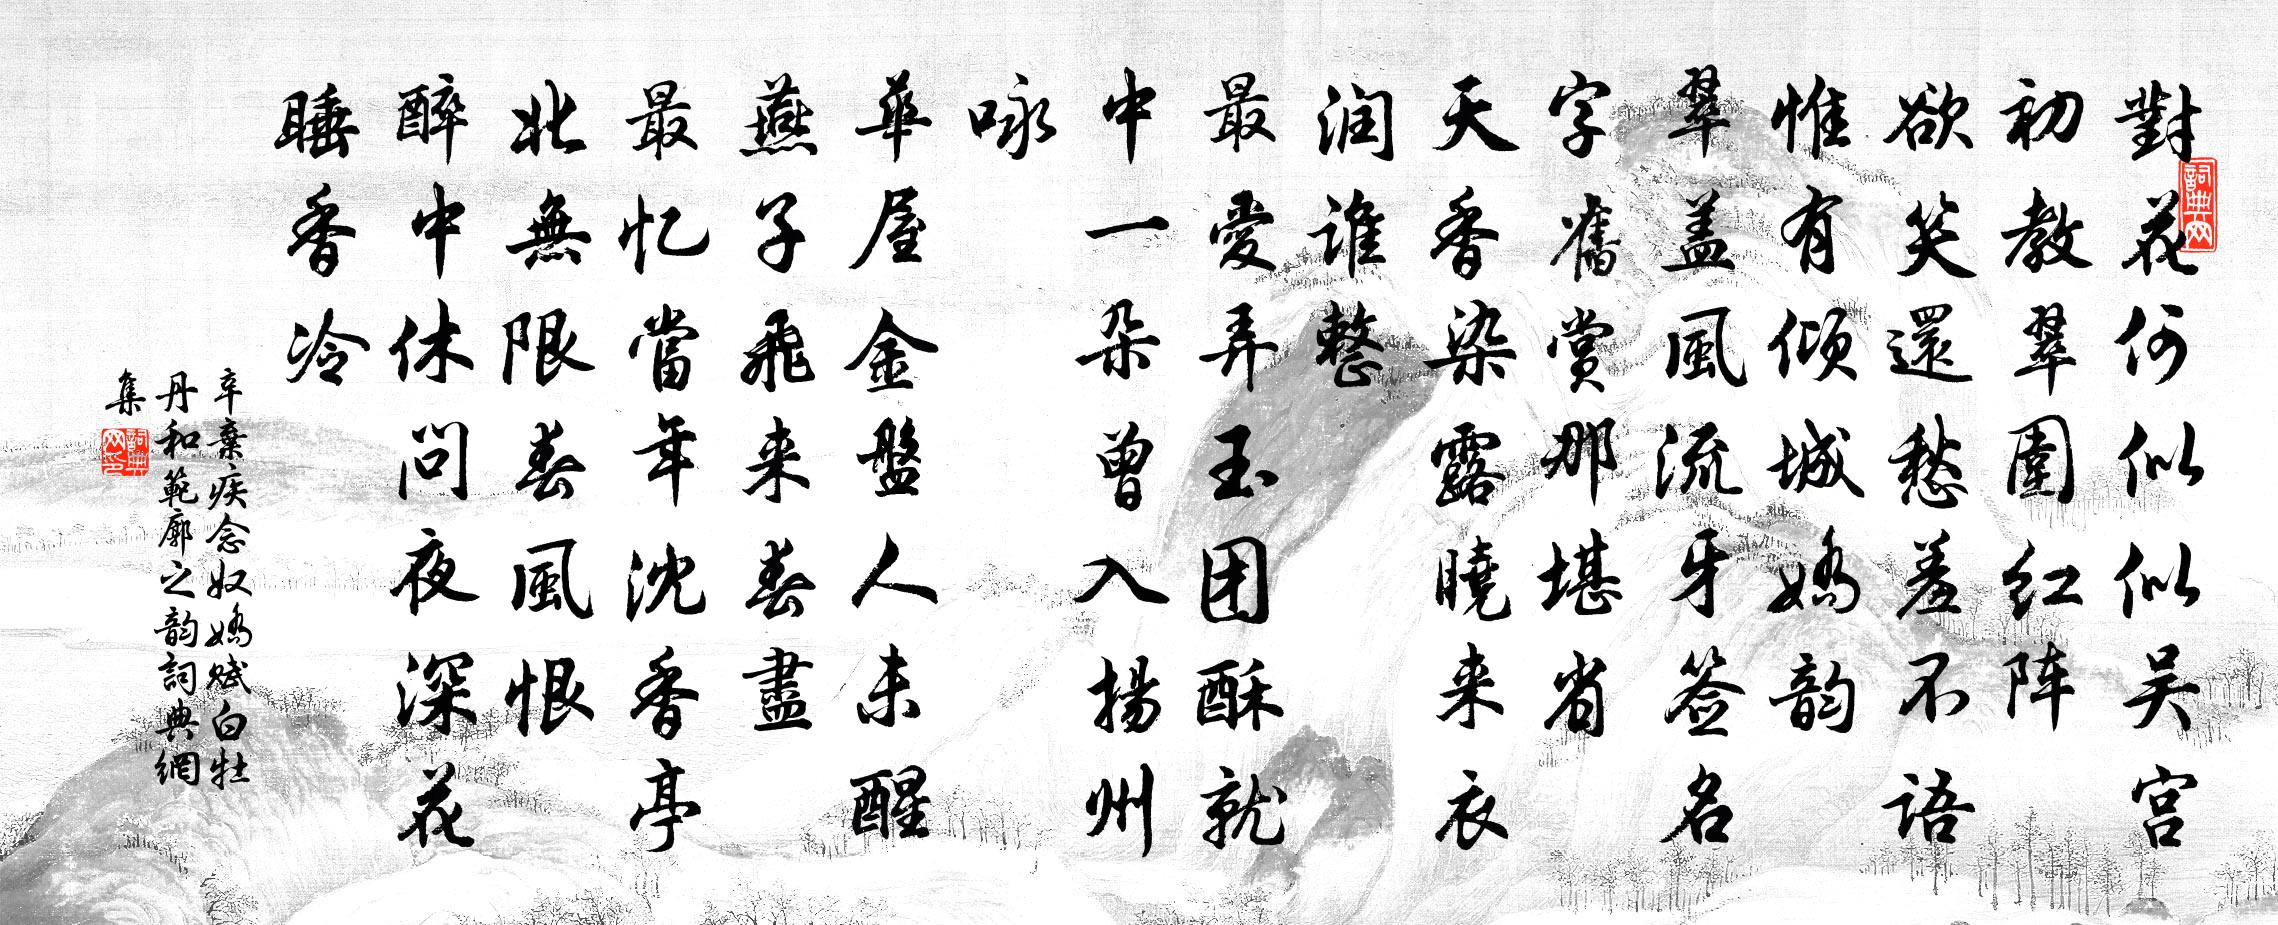 對花何似似吴宫
初教翠圍红阵
欲笑還愁羞不语
惟有倾城嬌韵
翠盖風流牙签名
字舊赏那堪省
天香染露曉来衣
润谁整
最愛弄玉团酥就
中一朵曾入揚州
咏
華屋金盤人未醒
燕子飛来春盡
最忆當年沈香亭
北無限春風恨
醉中休问夜深花
睡香冷
辛棄疾念奴嬌賦白牡
丹和範廓之韵詞典網
集
詞典网
詞典网印